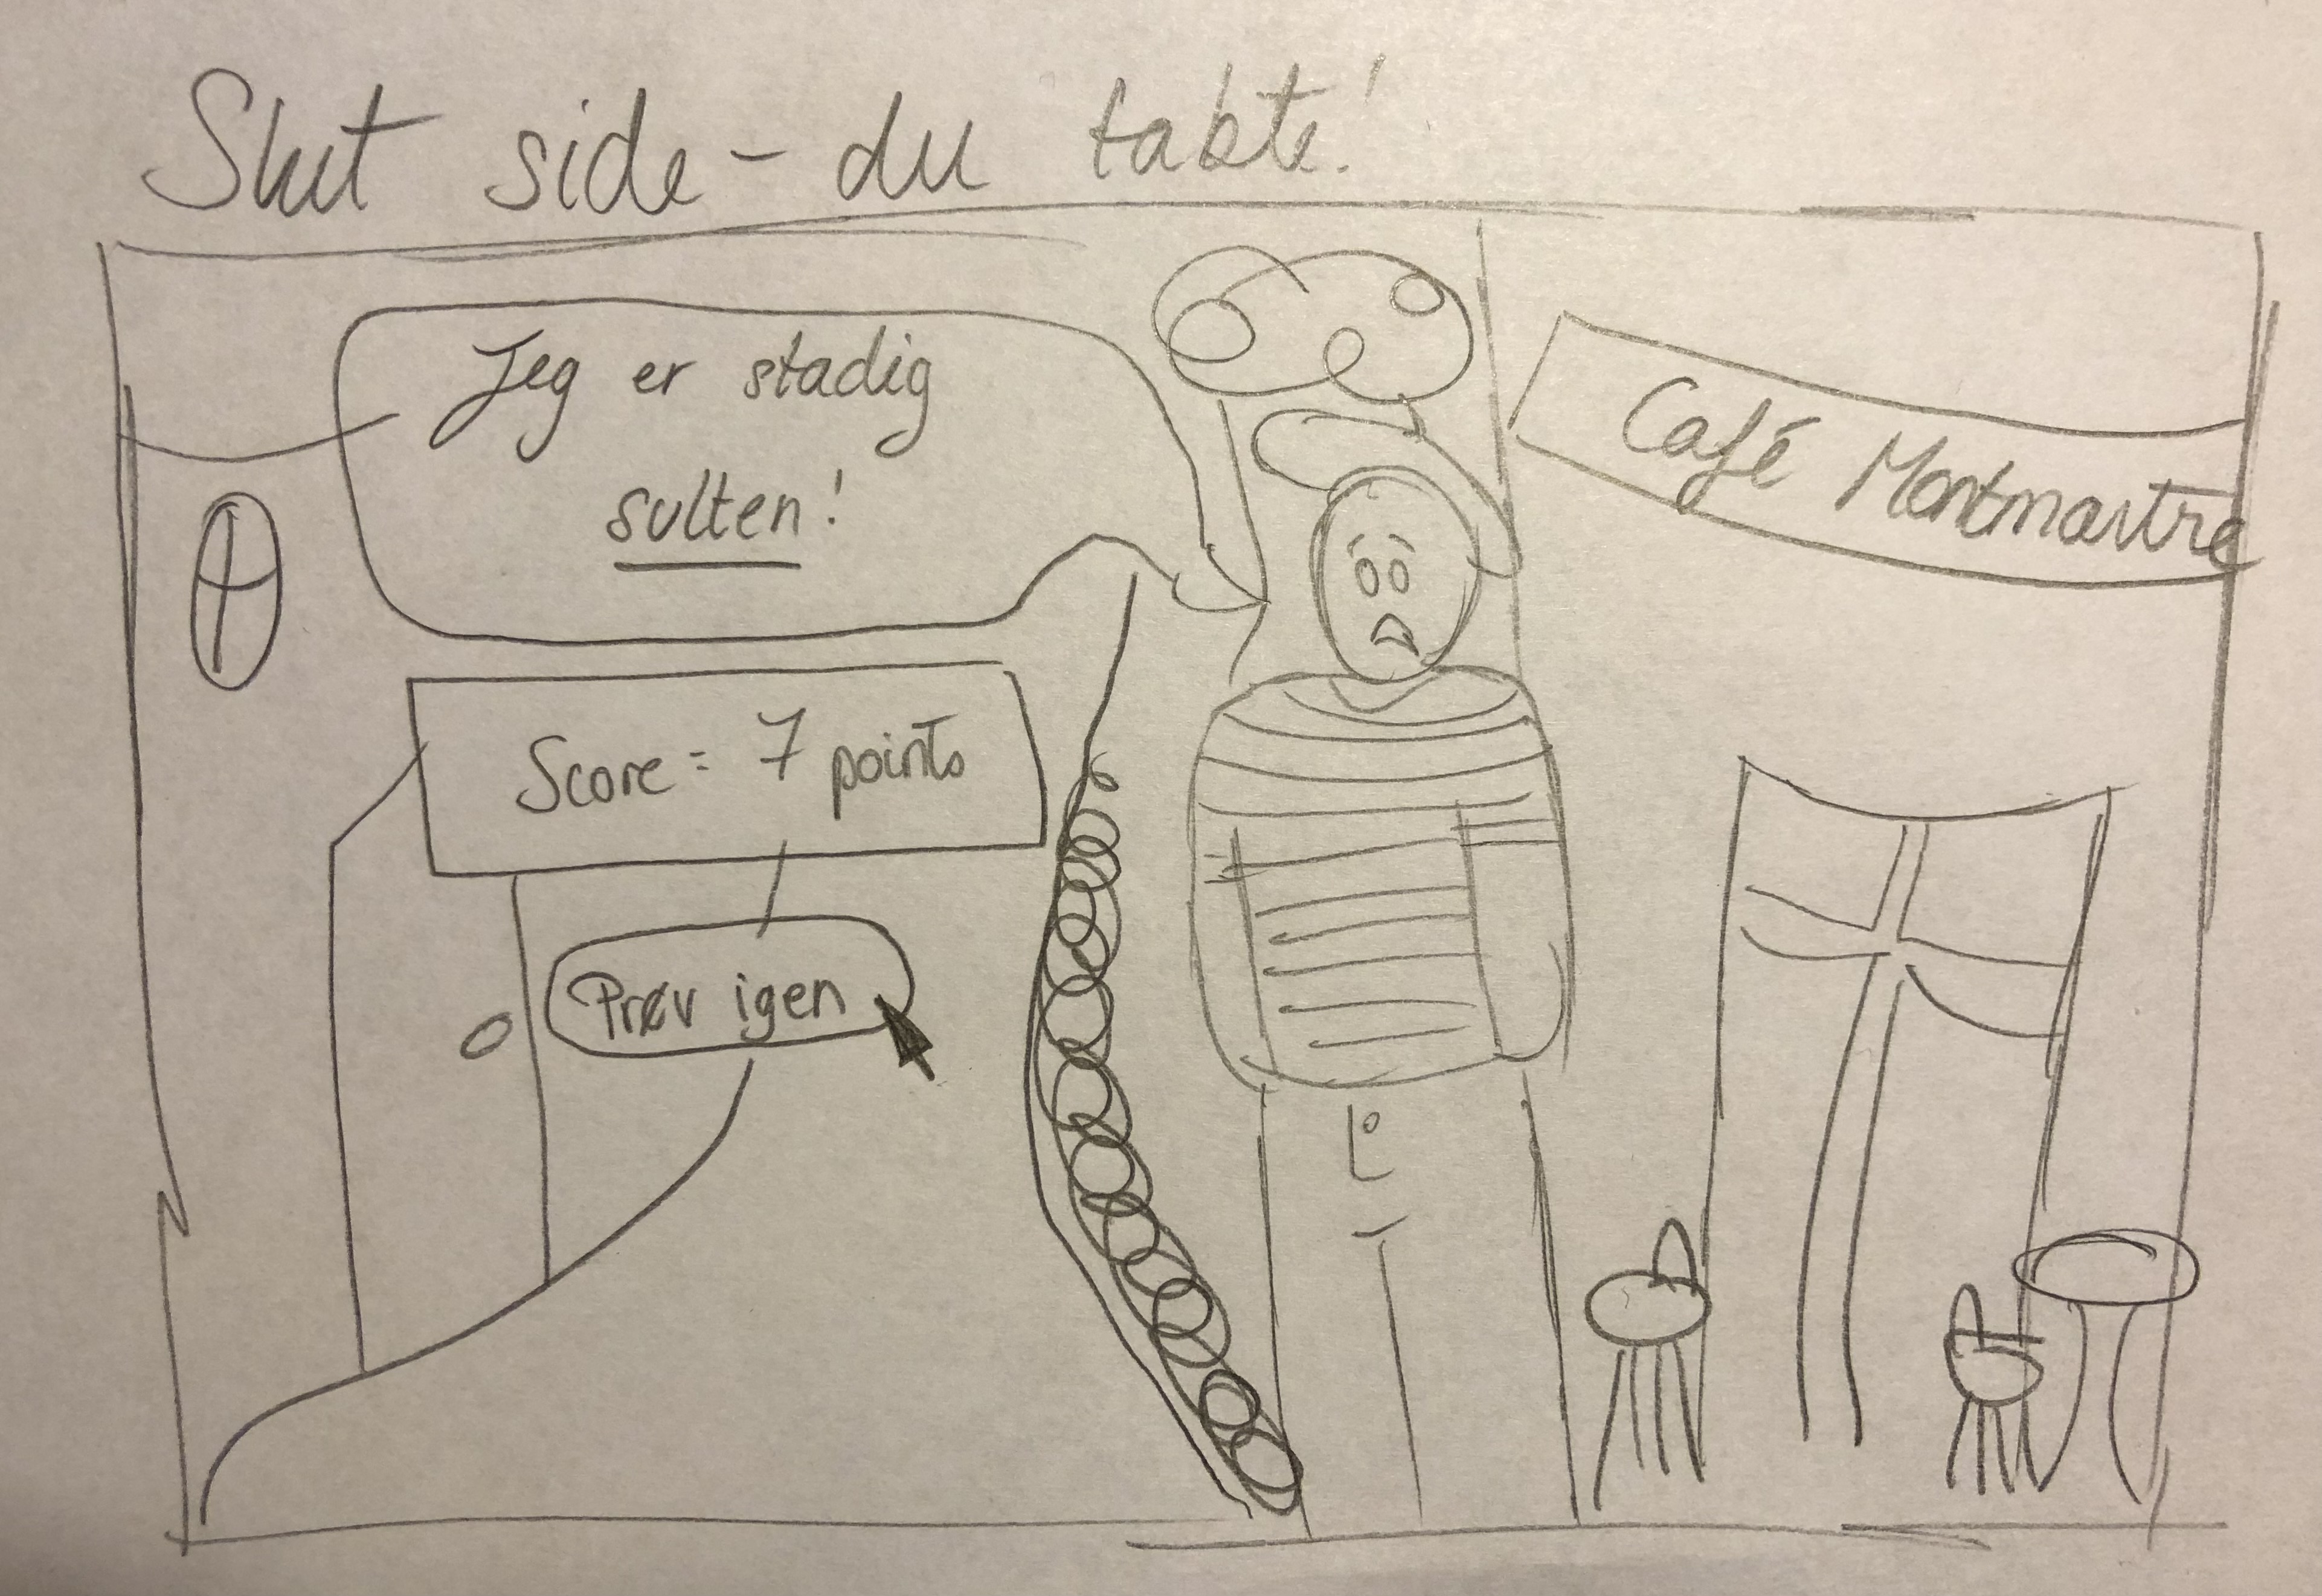 Slut side - du tabte!
Jeg er stadig
sulten!
Café Montmartre
Score = 7 points
Prøv igen